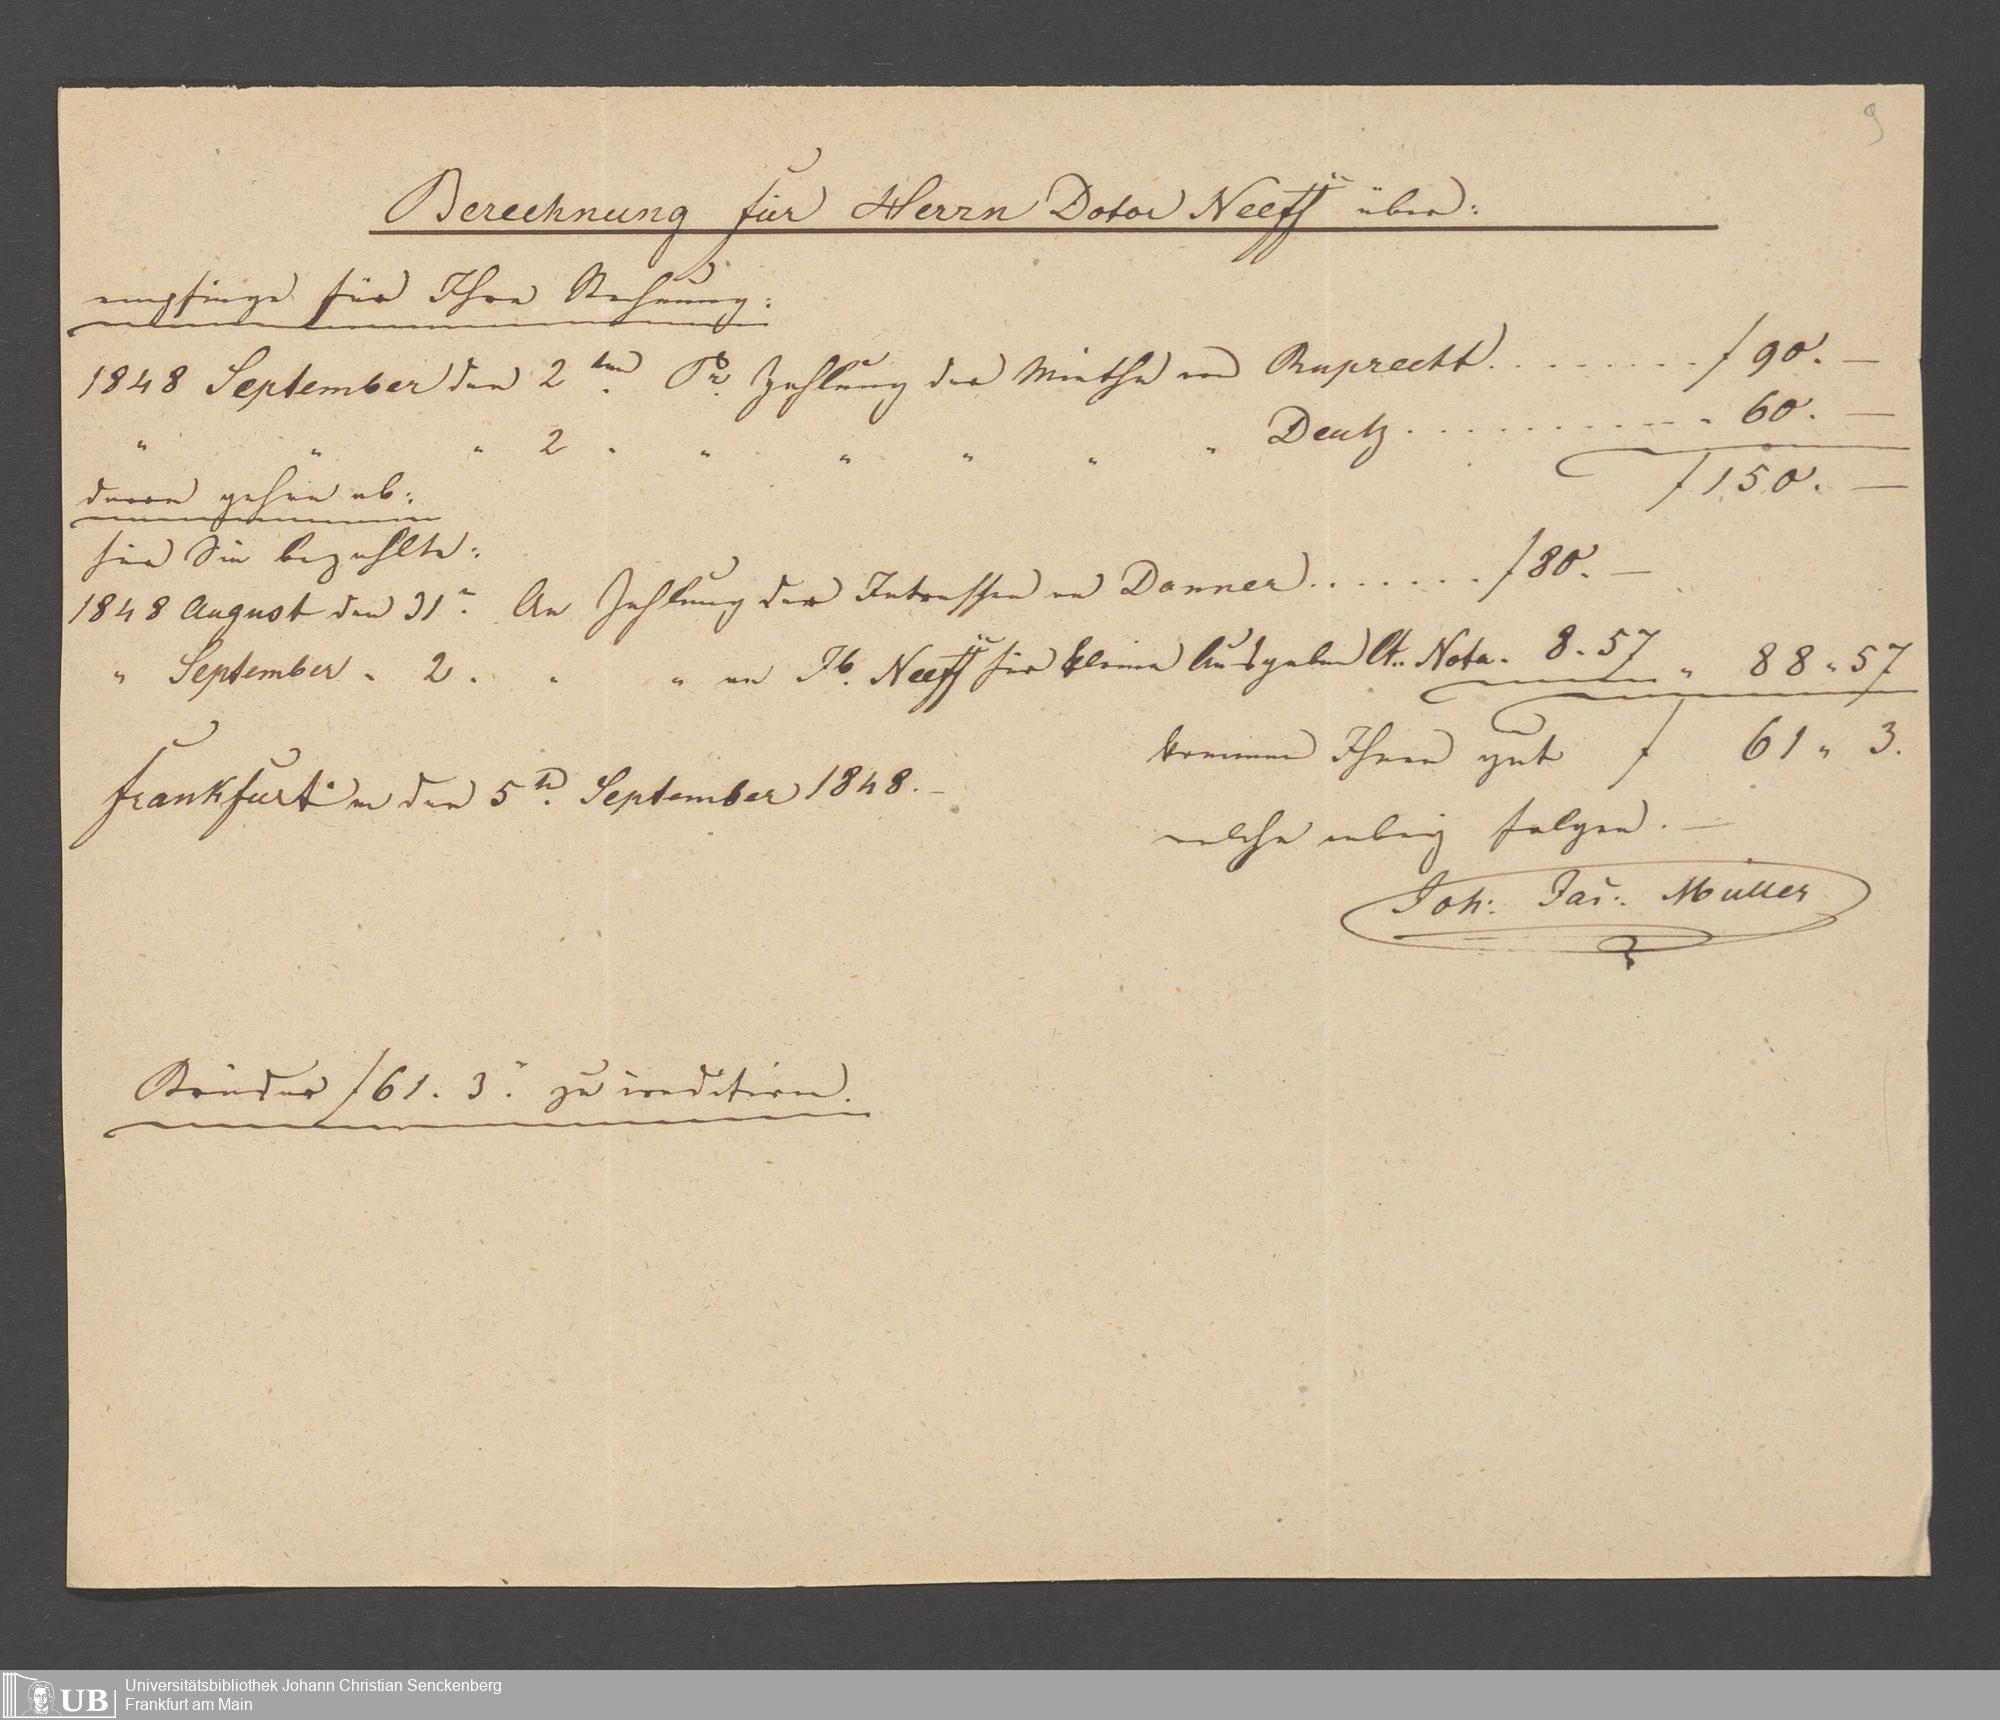 9
Berechnung für Herrn Dotor Neeff über:
empfinge für Ihre Rechnung:
1848 September den 2ten. Pr. Zahlung der Miethe von Ruprecht. . . . . . . . f 90. —
" " " 2 " " " " " " Deutz . . . . . . . . . . " 60. —
f 150. —
davon gehen ab:
für Sie bezahlte:
1848 August den 31". An Zahlung der Intressen an Donner . . . . . . . f 80. —
" September " 2. " " an Neeff für kleine Ausgaben lt. Nota. 8.57 " 88 " 57
kommen Ihnen gut f 61 " 3.
Frankfurt den 5n. September 1848. —
welche folgen. —
Joh: Jac: Müller
f 61. 3". zu creditiren.
UB
Universitätsbibliothek Johann Christian Senckenberg
Frankfurt am Main